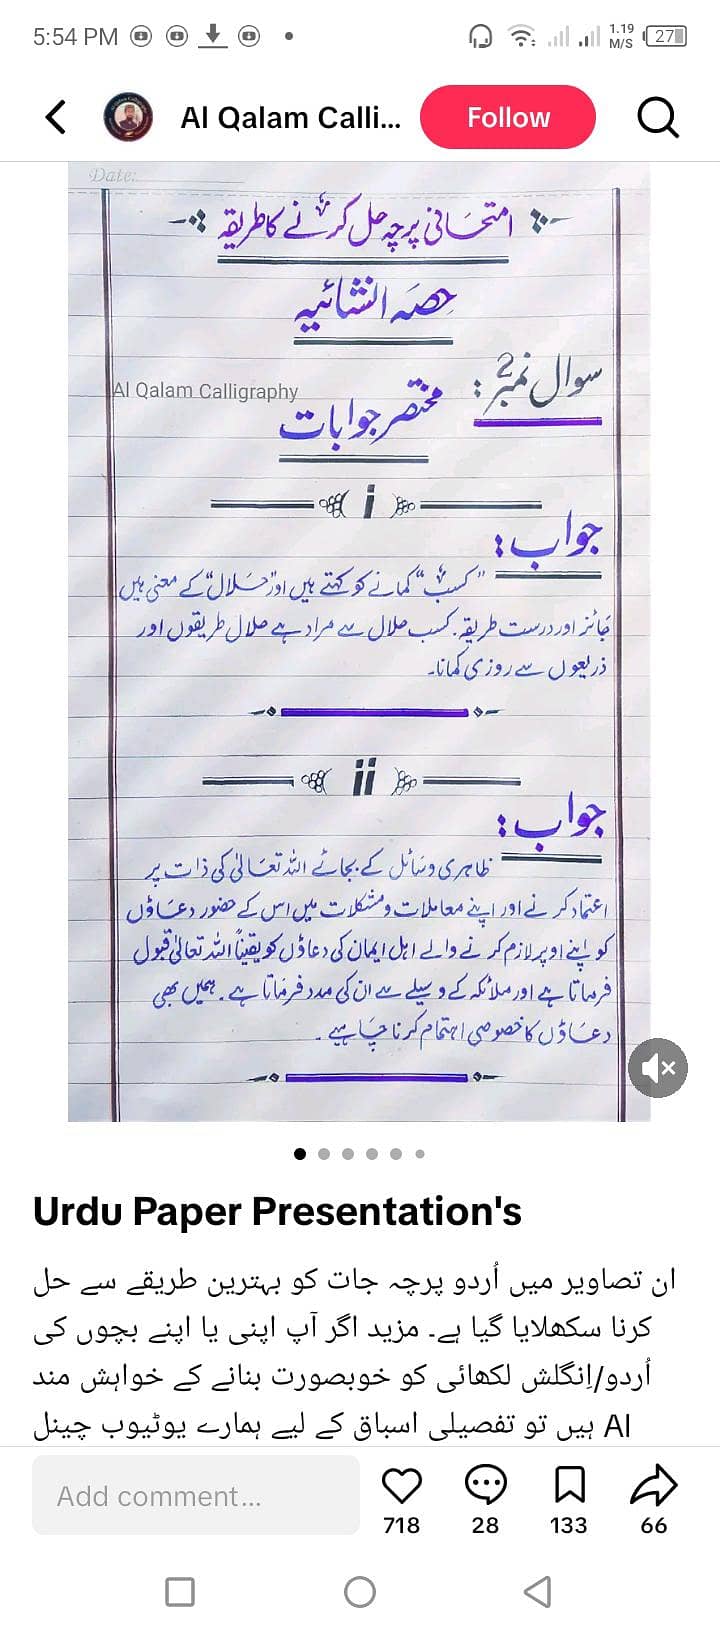 5:54 PM
1.19 M/S
27
Al Qalam Calli...
Follow
Date:
امتحانی پرچہ حل کرنے کا طریقہ
حصہ انشائیہ
سوال نمبر 2:
Al Qalam Calligraphy
مختصر جوابات
i
جواب:
"کسب" کمانے کو کہتے ہیں اور "حلال" کے معنی ہیں
جائز اور درست طریقہ۔ کسب حلال سے مراد ہے حلال طریقوں اور
ذریعوں سے روزی کمانا۔
ii
جواب:
ظاہری وسائل کے بجائے اللہ تعالیٰ کی ذات پر
اعتماد کرنے اور اپنے معاملات و مشکلات میں اس کے حضور دعاؤں
کو اپنے اوپر لازم کرنے والے اہل ایمان کی دعاؤں کو یقیناً اللہ تعالیٰ قبول
فرماتا ہے اور ملائکہ کے وسیلے سے ان کی مدد فرماتا ہے۔ ہمیں بھی
دعاؤں کا خصوصی اہتمام کرنا چاہیے۔
Urdu Paper Presentation's
ان تصاویر میں اُردو پرچہ جات کو بہترین طریقے سے حل
کرنا سکھلایا گیا ہے۔ مزید اگر آپ اپنی یا اپنے بچوں کی
اُردو/اِنگلش لکھائی کو خوبصورت بنانے کے خواہش مند
ہیں تو تفصیلی اسباق کے لیے ہمارے یوٹیوب چینل Al
Add comment...
718
28
133
66